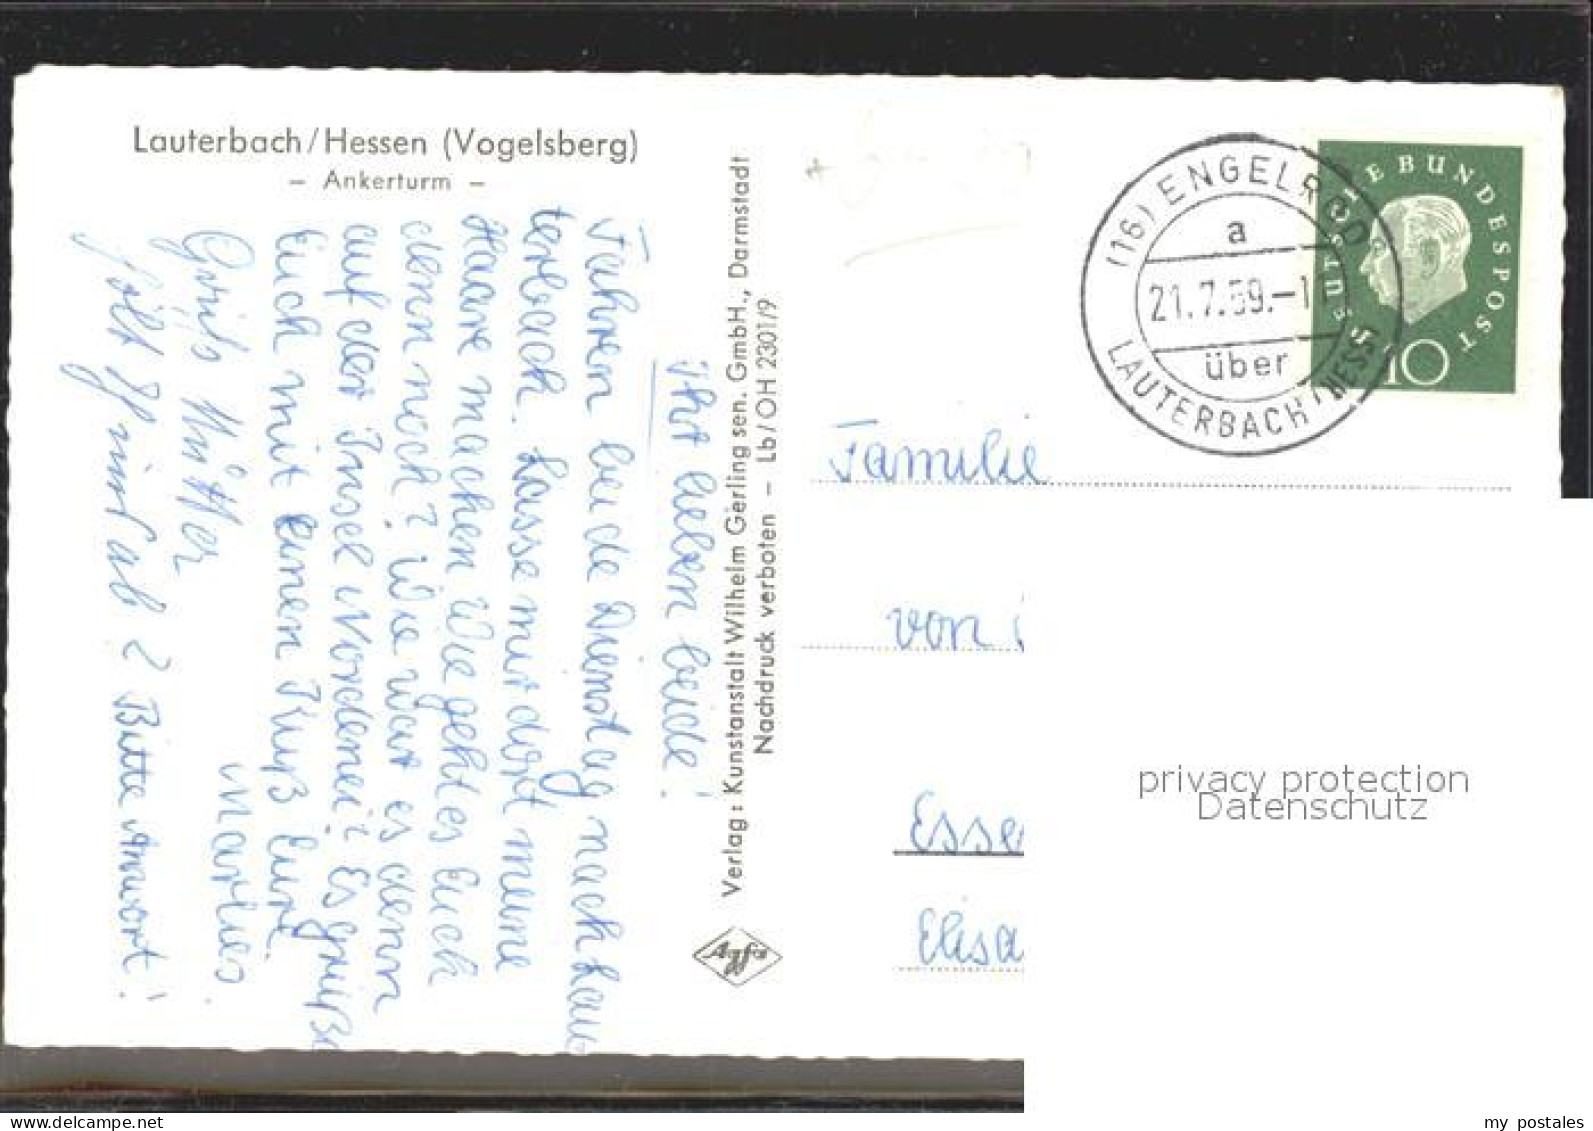 Lauterbach/Hessen (Vogelsberg)
– Ankerturm –
Ihr lieben beide!
Fahren beide Dienstag nach Lau-
terbach. Lasse mir dort meine
Haare machen. Wie geht es Euch
denn noch? Wie war es denn
auf der Insel Nordernei? Es grüßt
Euch mit einen Kuß Eure
Marlies.
Gruß Mutter
holt ab? Bitte Antwort!
Verlag: Kunstanstalt Wilhelm Gerling sen. GmbH., Darmstadt
Nachdruck verboten – Lb/OH 2301/9
Agfa
(16) ENGELROD
a
21.7.59.-1
über
LAUTERBACH (HESS)
DEUTSCHE BUNDESPOST
10
Familie
von
Esse
Elisa
privacy protection
Datenschutz
my postales
www.delcampe.net